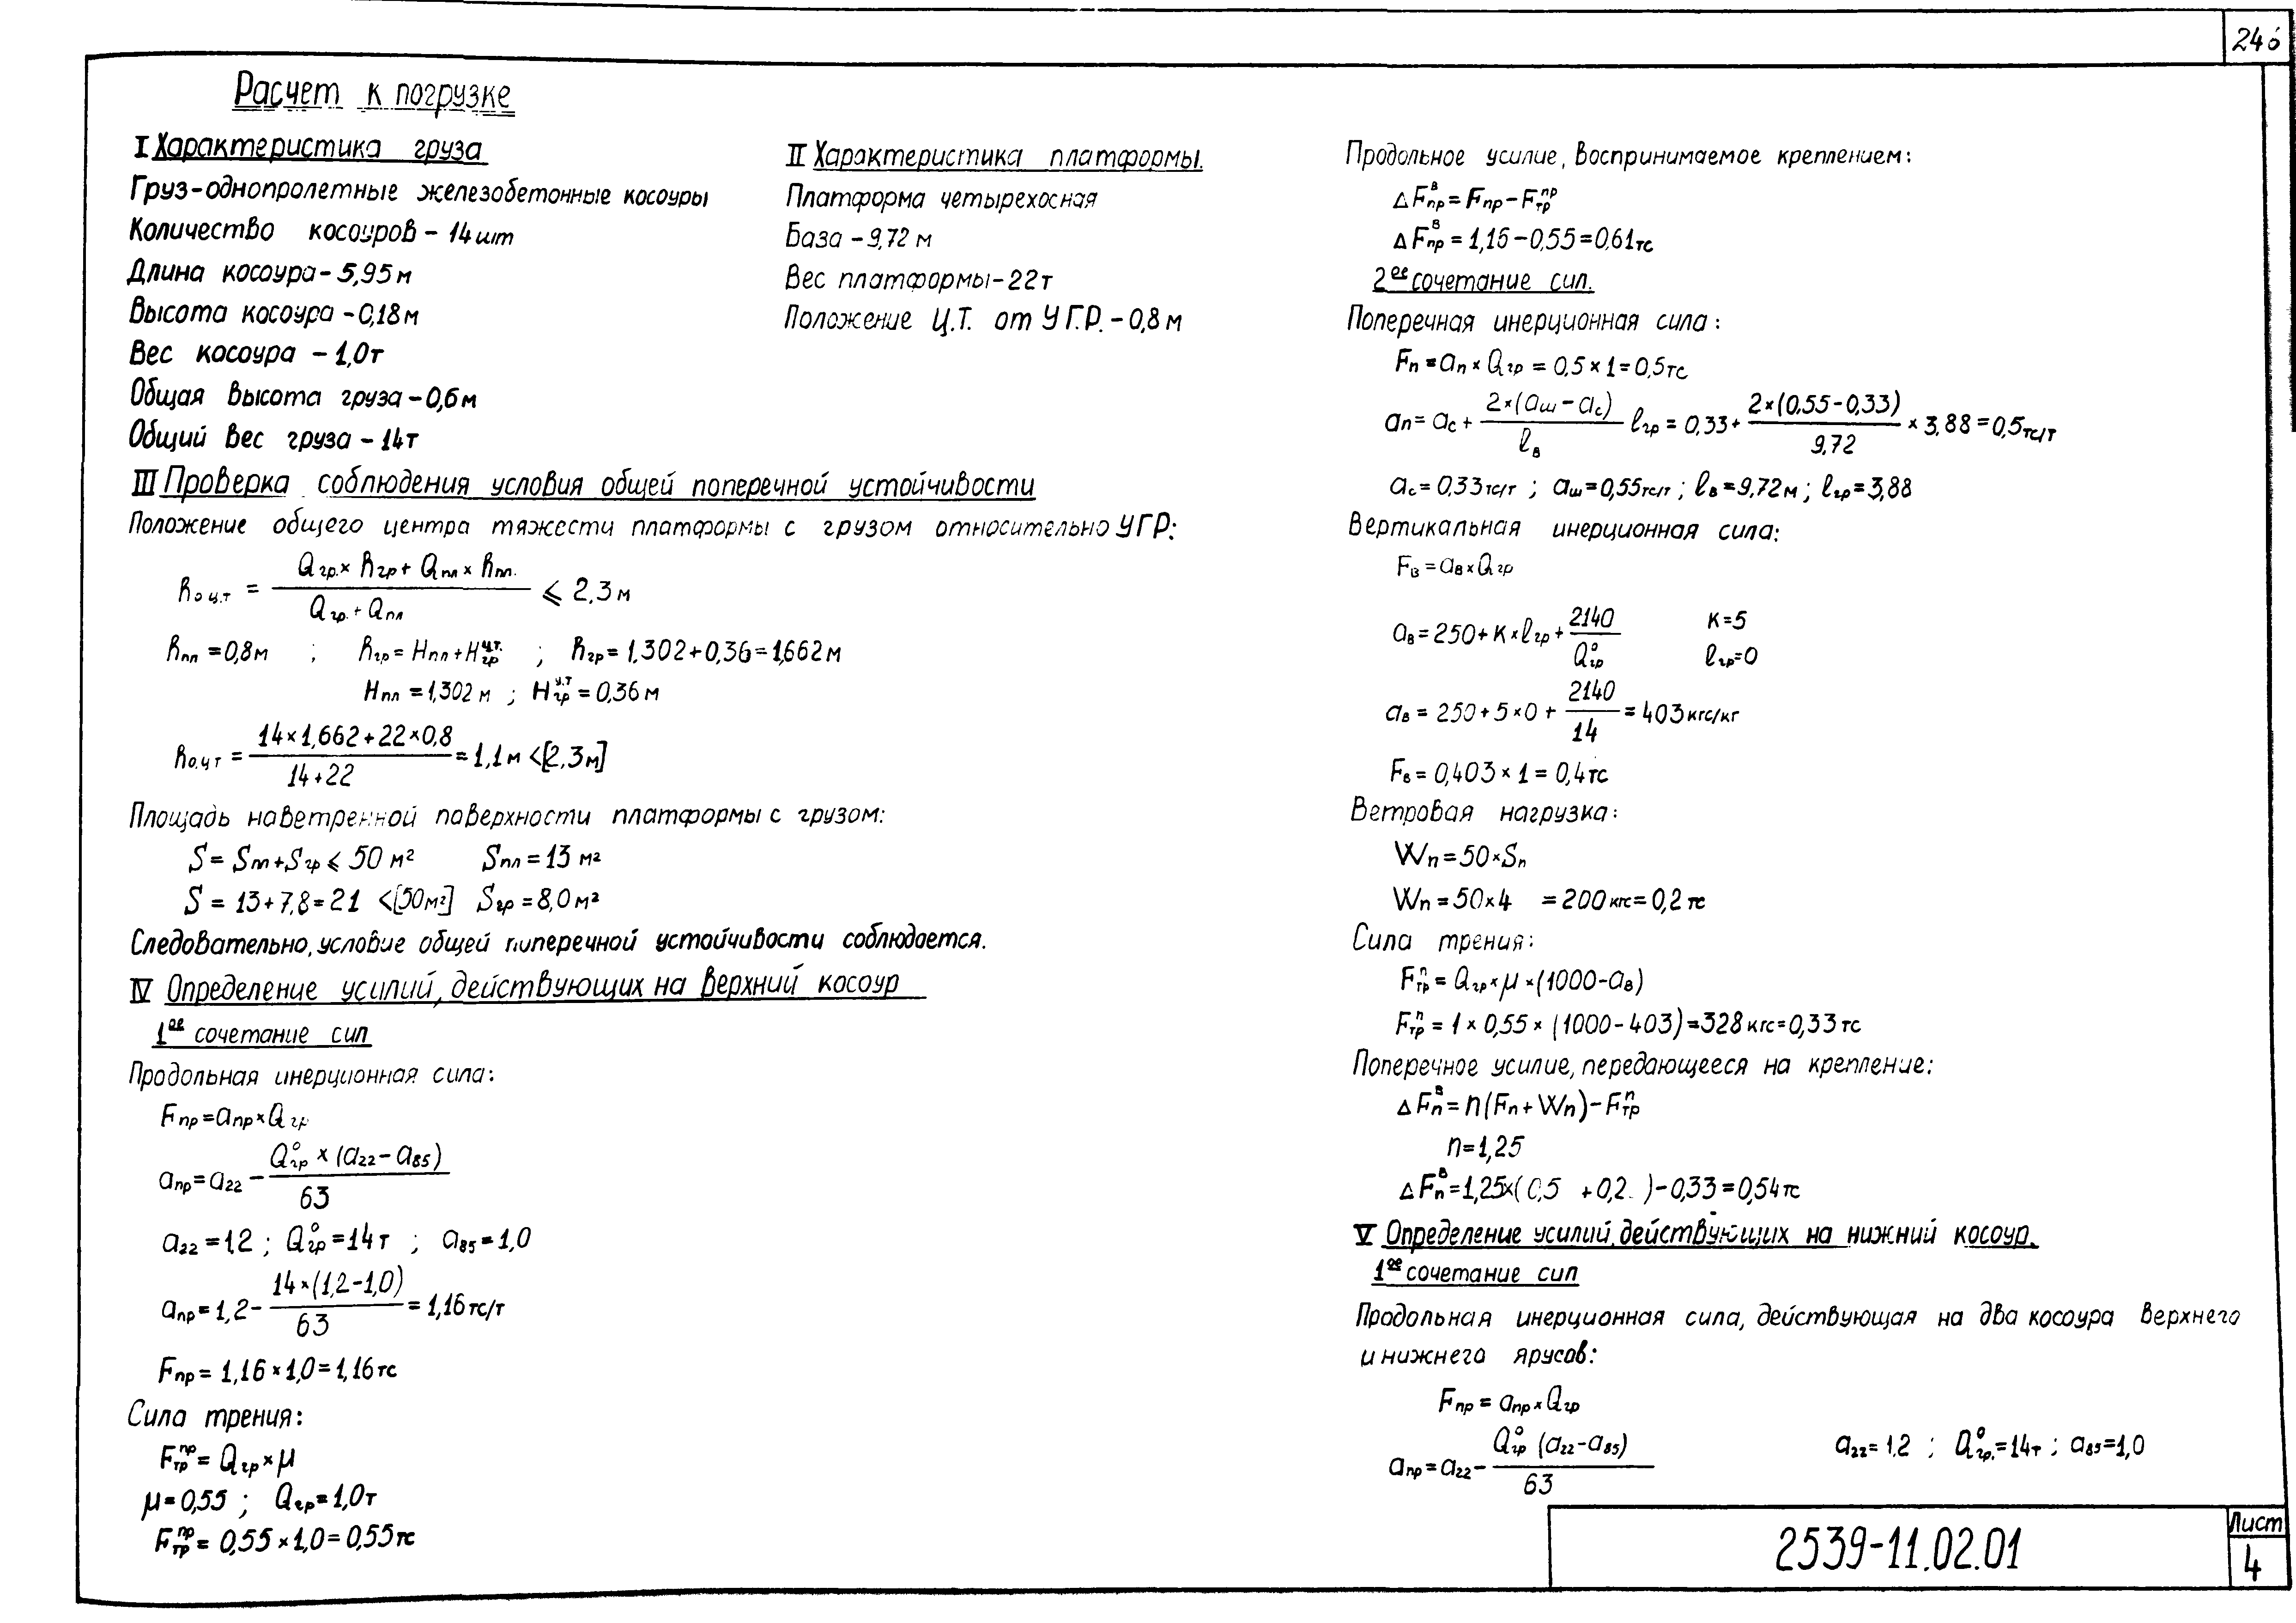 246
Расчет к погрузке
I Характеристика груза
Груз-однопролетные железобетонные косоуры
Количество косоуров - 14 шт
Длина косоура - 5,95 м
Высота косоура - 0,18 м
Вес косоура - 1,0т
Общая высота груза - 0,6 м
Общий вес груза - 14т
II Характеристика платформы.
Платформа четырехосная
База - 9,72 м
Вес платформы - 22т
Положение Ц.Т. от УГ.Р. - 0,8 м
III Проверка соблюдения условия общей поперечной устойчивости
Положение общего центра тяжести платформы с грузом относительно УГР:
hо ц.т = (Qгр. × hгр + Qпл × hпл.) / (Qгр. + Qпл) ⩽ 2,3 м
hпл = 0,8м ; hгр = Hпл + Hгр ц.т. ; hгр = 1,302 + 0,36 = 1,662 м
Hпл = 1,302 м ; Hгр ц.т = 0,36 м
hо.ц т = (14×1,662 + 22×0,8) / (14+22) = 1,1 м < [2,3 м]
Площадь наветренной поверхности платформы с грузом:
S = Sпл + Sгр ⩽ 50 м² Sпл = 13 м²
S = 13 + 7,8 = 21 < [50м²] Sгр = 8,0 м²
Следовательно, условие общей поперечной устойчивости соблюдается.
IV Определение усилий, действующих на верхний косоур
1ое сочетание сил
Продольная инерционная сила:
Fпр = aпр × Qгр
aпр = a22 - Q°гр × (a22 - a85) / 63
a22 = 1,2 ; Q°гр = 14 т ; a85 = 1,0
aпр = 1,2 - 14 × (1,2 - 1,0) / 63 = 1,16 тс/т
Fпр = 1,16 × 1,0 = 1,16 тс
Сила трения:
Fтр пр = Qгр × μ
μ = 0,55 ; Qгр = 1,0т
Fтр пр = 0,55 × 1,0 = 0,55 тс
Продольное усилие, воспринимаемое креплением:
ΔFпр в = Fпр - Fтр пр
ΔFпр в = 1,16 - 0,55 = 0,61 тс
2ое сочетание сил.
Поперечная инерционная сила:
Fп = aп × Qгр = 0,5 × 1 = 0,5 тс
aп = aс + 2×(aш - aс) / ℓв ℓгр = 0,33 + 2×(0,55 - 0,33) / 9,72 × 3,88 = 0,5 тс/т
aс = 0,33 тс/т ; aш = 0,55 тс/т ; ℓв = 9,72 м ; ℓгр = 3,88
Вертикальная инерционная сила:
Fв = aв × Qгр
aв = 250 + к × ℓгр + 2140 / Q°гр к = 5
ℓгр = 0
aв = 250 + 5 × 0 + 2140 / 14 = 403 кгс/кг
Fв = 0,403 × 1 = 0,4 тс
Ветровая нагрузка:
Wп = 50 × Sп
Wп = 50 × 4 = 200 кгс = 0,2 тс
Сила трения:
Fтр п = Qгр × μ × (1000 - aв)
Fтр п = 1 × 0,55 × (1000 - 403) = 328 кгс = 0,33 тс
Поперечное усилие, передающееся на крепление:
ΔFп в = n (Fп + Wп) - Fтр п
n = 1,25
ΔFп в = 1,25 × (0,5 + 0,2 ) - 0,33 = 0,54 тс
V Определение усилий, действующих на нижний косоур.
1ое сочетание сил
Продольная инерционная сила, действующая на два косоура верхнего
и нижнего ярусов:
Fпр = aпр × Qгр
aпр = a22 - Q°гр (a22 - a85) / 63 a22 = 1,2 ; Q°гр. = 14т ; a85 = 1,0
2539-11.02.01
Лист
4